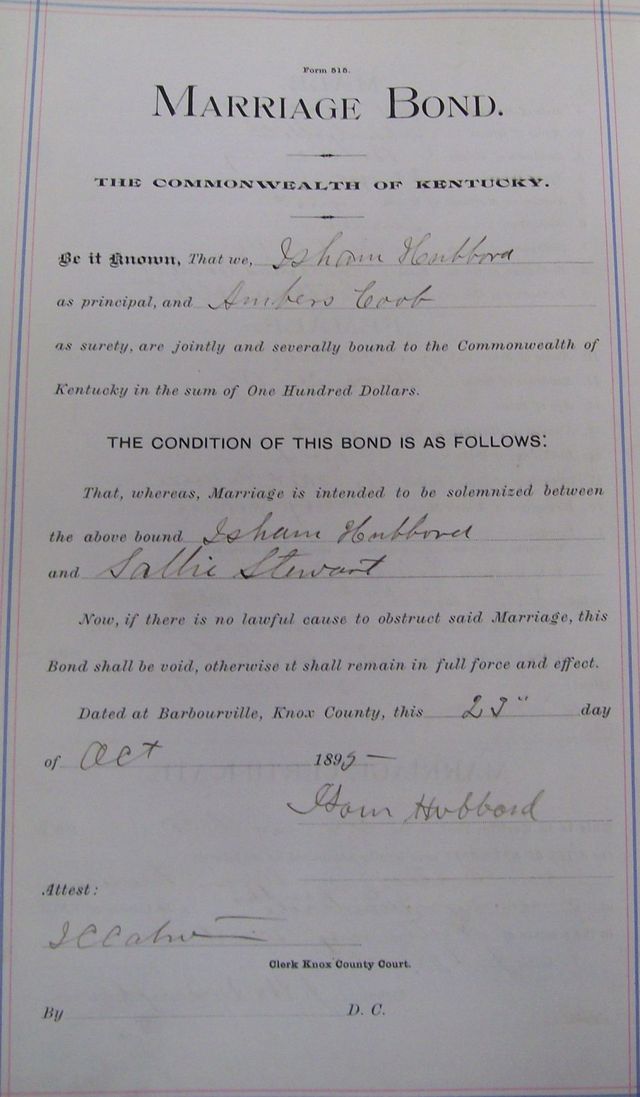 Form 515.
MARRIAGE BOND.
THE COMMONWEALTH OF KENTUCKY.
Be it Known, That we, Isham Hubbord
as principal, and Ambers Coob
as surety, are jointly and severally bound to the Commonwealth of
Kentucky in the sum of One Hundred Dollars.
THE CONDITION OF THIS BOND IS AS FOLLOWS:
That, whereas, Marriage is intended to be solemnized between
the above bound Isham Hubbord
and Sallie Stewart
Now, if there is no lawful cause to obstruct said Marriage, this
Bond shall be void, otherwise it shall remain in full force and effect.
Dated at Barbourville, Knox County, this 23" day
of Oct 1895
Isom Hubbord
Attest:
Clerk Knox County Court.
By D. C.